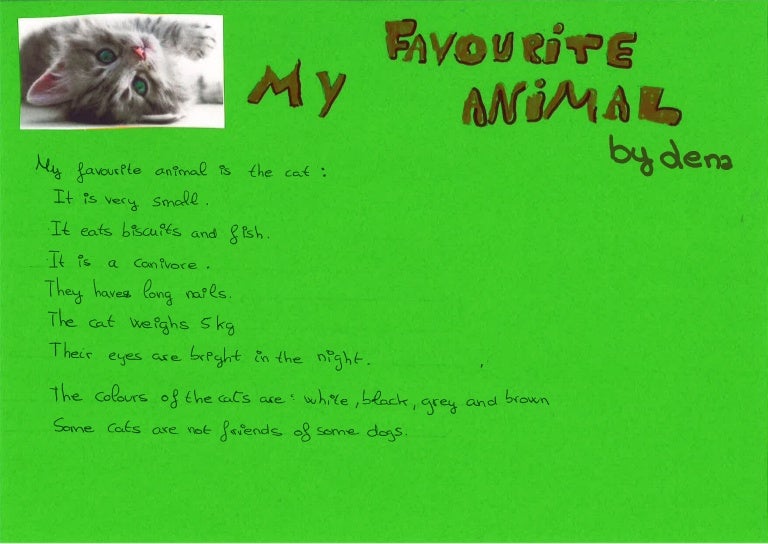 MY FAVOURITE ANiMAL
by dena
My favourite animal is the cat :
It is very small.
It eats biscuits and fish.
It is a canivore.
They haves long nails.
The cat weighs 5kg
Their eyes are bright in the night.
The colours of the cats are: white, black, grey and brown
Some cats are not friends of some dogs.